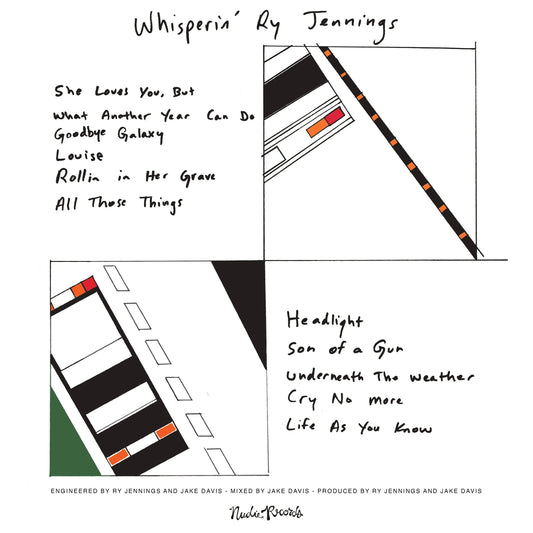 Whisperin' Ry Jennings
She Loves You, But
What Another Year Can Do
Goodbye Galaxy
Louise
Rollin in Her Grave
All Those Things
Headlight
Son of a Gun
Underneath The Weather
Cry No More
Life As You Know
ENGINEERED BY RY JENNINGS AND JAKE DAVIS - MIXED BY JAKE DAVIS - PRODUCED BY RY JENNINGS AND JAKE DAVIS
Nudie Records